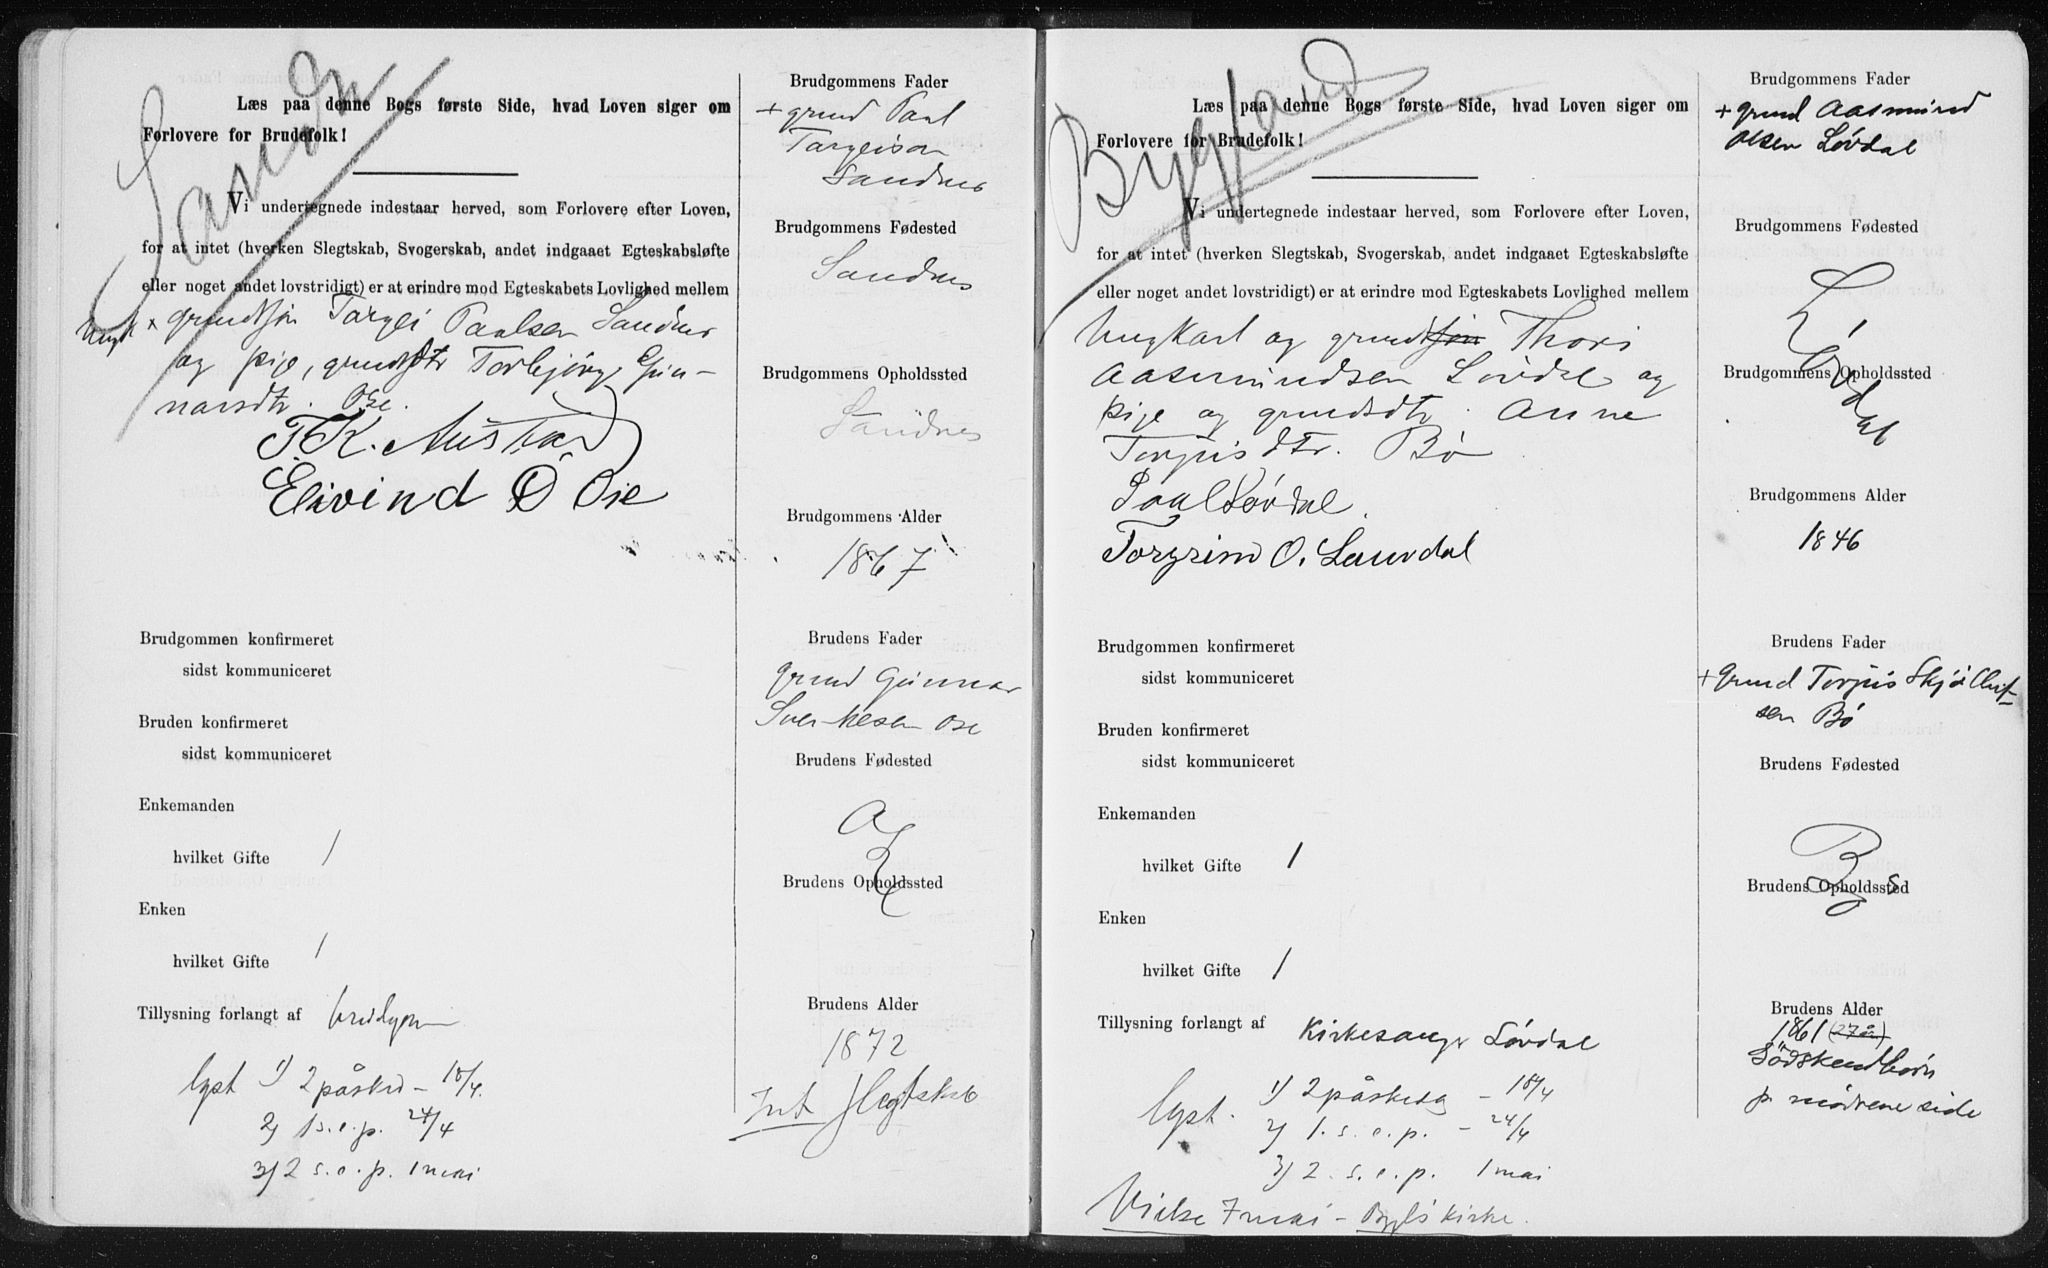 Læs paa denne Bogs første Side, hvad Loven siger om
Forlovere for Brudefolk!
Vi undertegnede indestaar herved, som Forlovere efter Loven,
for at intet (hverken Slegtskab, Svogerskab, andet indgaaet Egteskabsløfte
eller noget andet lovstridigt) er at erindre mod Egteskabets Lovlighed mellem
ungk. grundsøn Targei Paalsen Sandnes
og pige, grundsdtr Torbjørg Gun-
narsdtr. Ose.
T.K. Austad
Eivind O Ose
Brudgommen konfirmeret
sidst kommuniceret
Bruden konfirmeret
sidst kommuniceret
Enkemanden
hvilket Gifte 1
Enken
hvilket Gifte 1
Tillysning forlangt af brudgom
lyst 1) 2 påsked – 18/4.
2) 1 s. e. p. 24/4
3) 2 s. e. p. 1 mai
Brudgommens Fader
+ grund Paal
Targeison
Sandnes
Brudgommens Fødested
Sandnes
Brudgommens Opholdssted
Sandnes
Brudgommens Alder
1867
Brudens Fader
grund Gunnar
Sverkesen Ose
Brudens Fødested
Ose
Brudens Opholdssted
Brudens Alder
1872
Int slegtskab
Bygland
Læs paa denne Bogs første Side, hvad Loven siger om
Forlovere for Brudefolk!
Vi undertegnede indestaar herved, som Forlovere efter Loven,
for at intet (hverken Slegtskab, Svogerskab, andet indgaaet Egteskabsløfte
eller noget andet lovstridigt) er at erindre mod Egteskabets Lovlighed mellem
Ungkarl og grundsøn Thors
Aasmundsen Løvdal og
pige og grundsdtr. Anne
Torjusdtr. Bø
Paal Løvdal.
Torgrim O. Lauvdal
Brudgommen konfirmeret
sidst kommuniceret
Bruden konfirmeret
sidst kommuniceret
Enkemanden
hvilket Gifte 1
Enken
hvilket Gifte 1
Tillysning forlangt af Kirkesanger Løvdal
lyst. 1) 2 påskedg – 18/4
2) 1. s. e. p. – 24/4
3) 2. s. e. p. 1 mai
Vielse 7 mai – Bygls kirke.
Brudgommens Fader
+ grund Aasmund
Olsen Løvdal
Brudgommens Fødested
Løvdal
Brudgommens Opholdssted
Brudgommens Alder
1846
Brudens Fader
+ Grund Torjus
sen Bø
Brudens Fødested
Bø
Brudens Opholdssted
Brudens Alder
1861 (27 år)
Södskendbørn
p. mødrene side